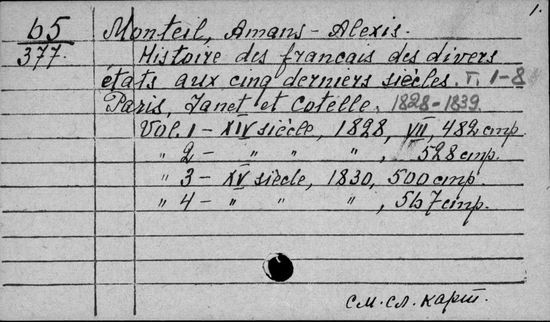 1.
b5
377.
Monteil, Amans-Alexis.
Histoire des francais des divers
états aux cinq derniers siècles. T. 1-8
Paris, Janet et Cotelle. 1828-1839
Vol. 1 - XIV siècle, 1828, VII, 482 стр.
" 2 - " " ", 528 стр.
" 3 - XV siècle, 1830, 500 стр.
" 4 - " " ", 567 стр.
см. сл. карт.